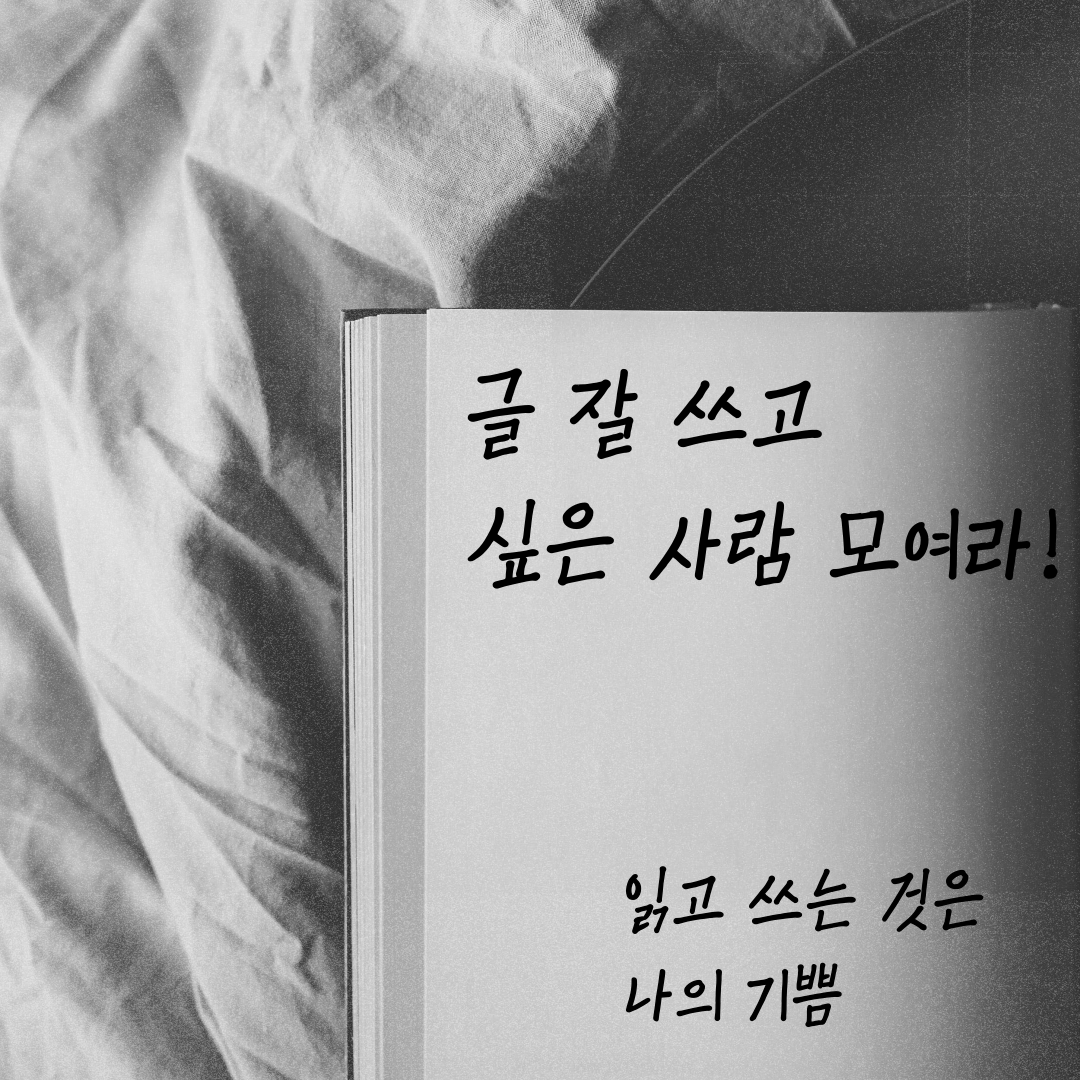 글 잘 쓰고
싶은 사람 모여라!
읽고 쓰는 것은
나의 기쁨